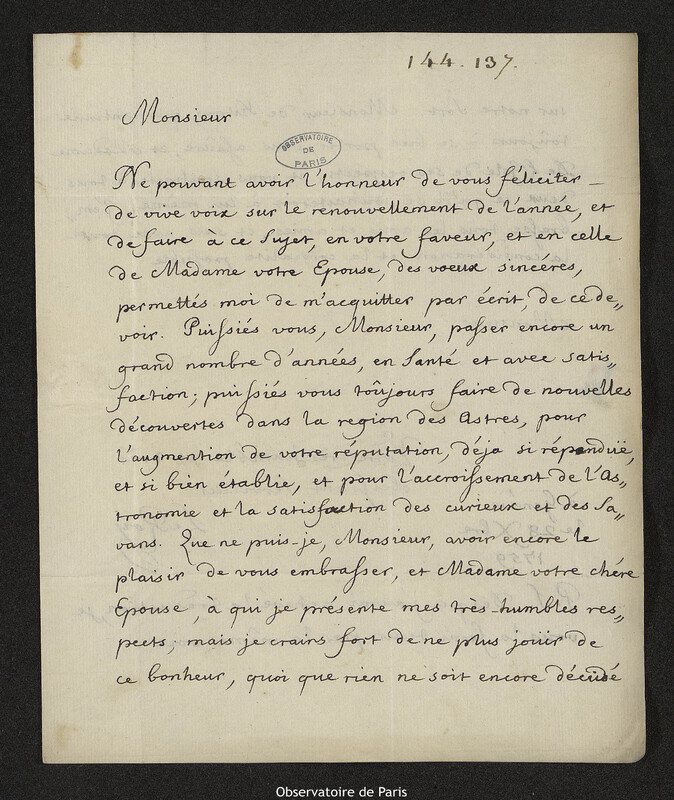 144. 137.
Monsieur
OBSERVATOIRE
DE
PARIS
Ne pouvant avoir l'honneur de vous féliciter
de vive voix sur le renouvellement de l'année, et
de faire à ce Sujet, en votre faveur, et en celle
de Madame votre Epouse, des voeux sincéres,
permettés moi de m'acquitter par écrit, de ce de„
voir. Puissiés vous, Monsieur, passer encore un
grand nombre d'années, en Santé et avec satis„
faction; puissiés vous toûjours faire de nouvelles
découvertes dans la region des Astres, pour
l'augmention de votre réputation, déja si répenduë,
et si bien établie, et pour l'accroissement de l'As„
tronomie et la satisfaction des curieux et des Sa„
vans. Que ne puis-je, Monsieur, avoir encore le
plaisir de vous embrasser, et Madame votre chére
Epouse, à qui je présente mes très-humbles res„
pects; mais je crains fort de ne plus jouir de
ce bonheur, quoi que rien ne soit encore décidé
Observatoire de Paris